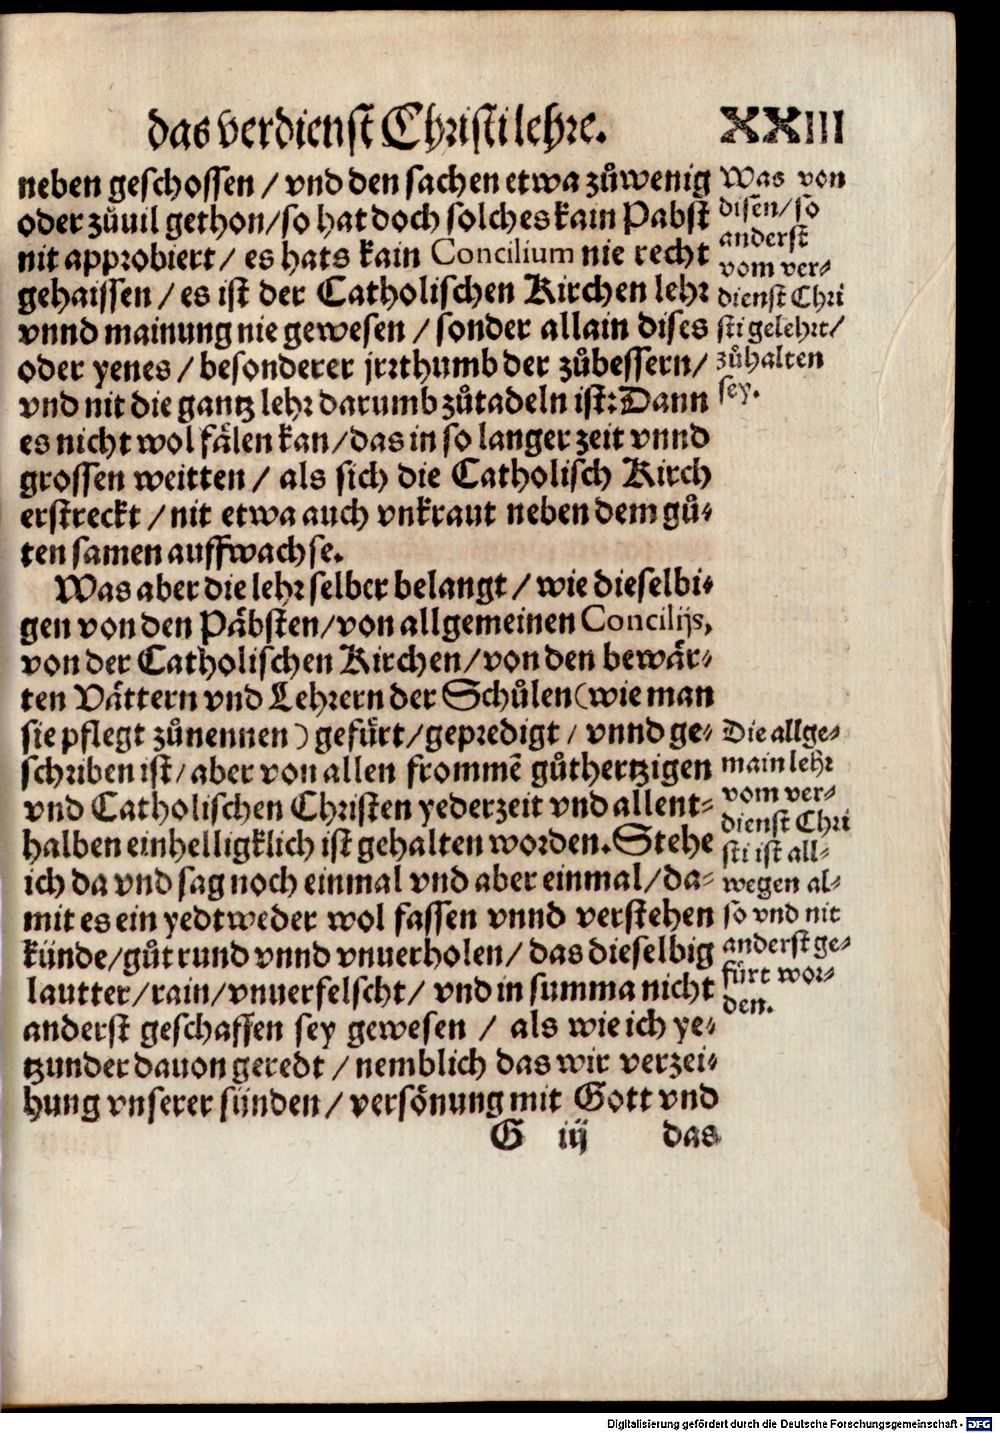 das verdienst Christi lehre. XXIII
neben geschossen / vnd den sachen etwa zůwenig
oder zůuil gethon / so hat doch solches kain Pabst
nit approbiert / es hats kain Concilium nie recht
gehaissen / es ist der Catholischen Kirchen lehr
vnnd mainung nie gewesen / sonder allain dises
oder yenes / besonderer jrrthumb der zůbessern /
vnd nit die gantz lehr darumb zůtadeln ist: Dann
es nicht wol fälen kan / das in so langer zeit vnnd
grossen weitten / als sich die Catholisch Kirch
erstreckt / nit etwa auch vnkraut neben dem gů-
ten samen auffwachse.
Was von
disen / so
anderst
vom ver-
dienst Chri
sti gelehrt /
zůhalten
sey.
Was aber die lehr selber belangt / wie dieselbi-
gen von den Päbsten / von allgemeinen Concilijs,
von der Catholischen Kirchen / von den bewär-
ten Vättern vnd Lehrern der Schůlen (wie man
sie pflegt zůnennen) gefürt / gepredigt / vnnd ge-
schriben ist / aber von allen frommē gůthertzigen
vnd Catholischen Christen yederzeit vnd allent-
halben einhelligklich ist gehalten worden. Stehe
ich da vnd sag noch einmal vnd aber einmal / da-
mit es ein yedtweder wol fassen vnnd verstehen
künde / gůt rund vnnd vnuerholen / das dieselbig
lautter / rain / vnuerfelscht / vnd in summa nicht
anderst geschaffen sey gewesen / als wie ich ye-
tzunder dauon geredt / nemblich das wir verzei-
hung vnserer sünden / versönung mit Gott vnd
Die allge-
main lehr
vom ver-
dienst Chri
sti ist all-
wegen al-
so vnd nit
anderst ge-
fürt wor-
den.
G iij das
Digitalisierung gefördert durch die Deutsche Forschungsgemeinschaft - DFG